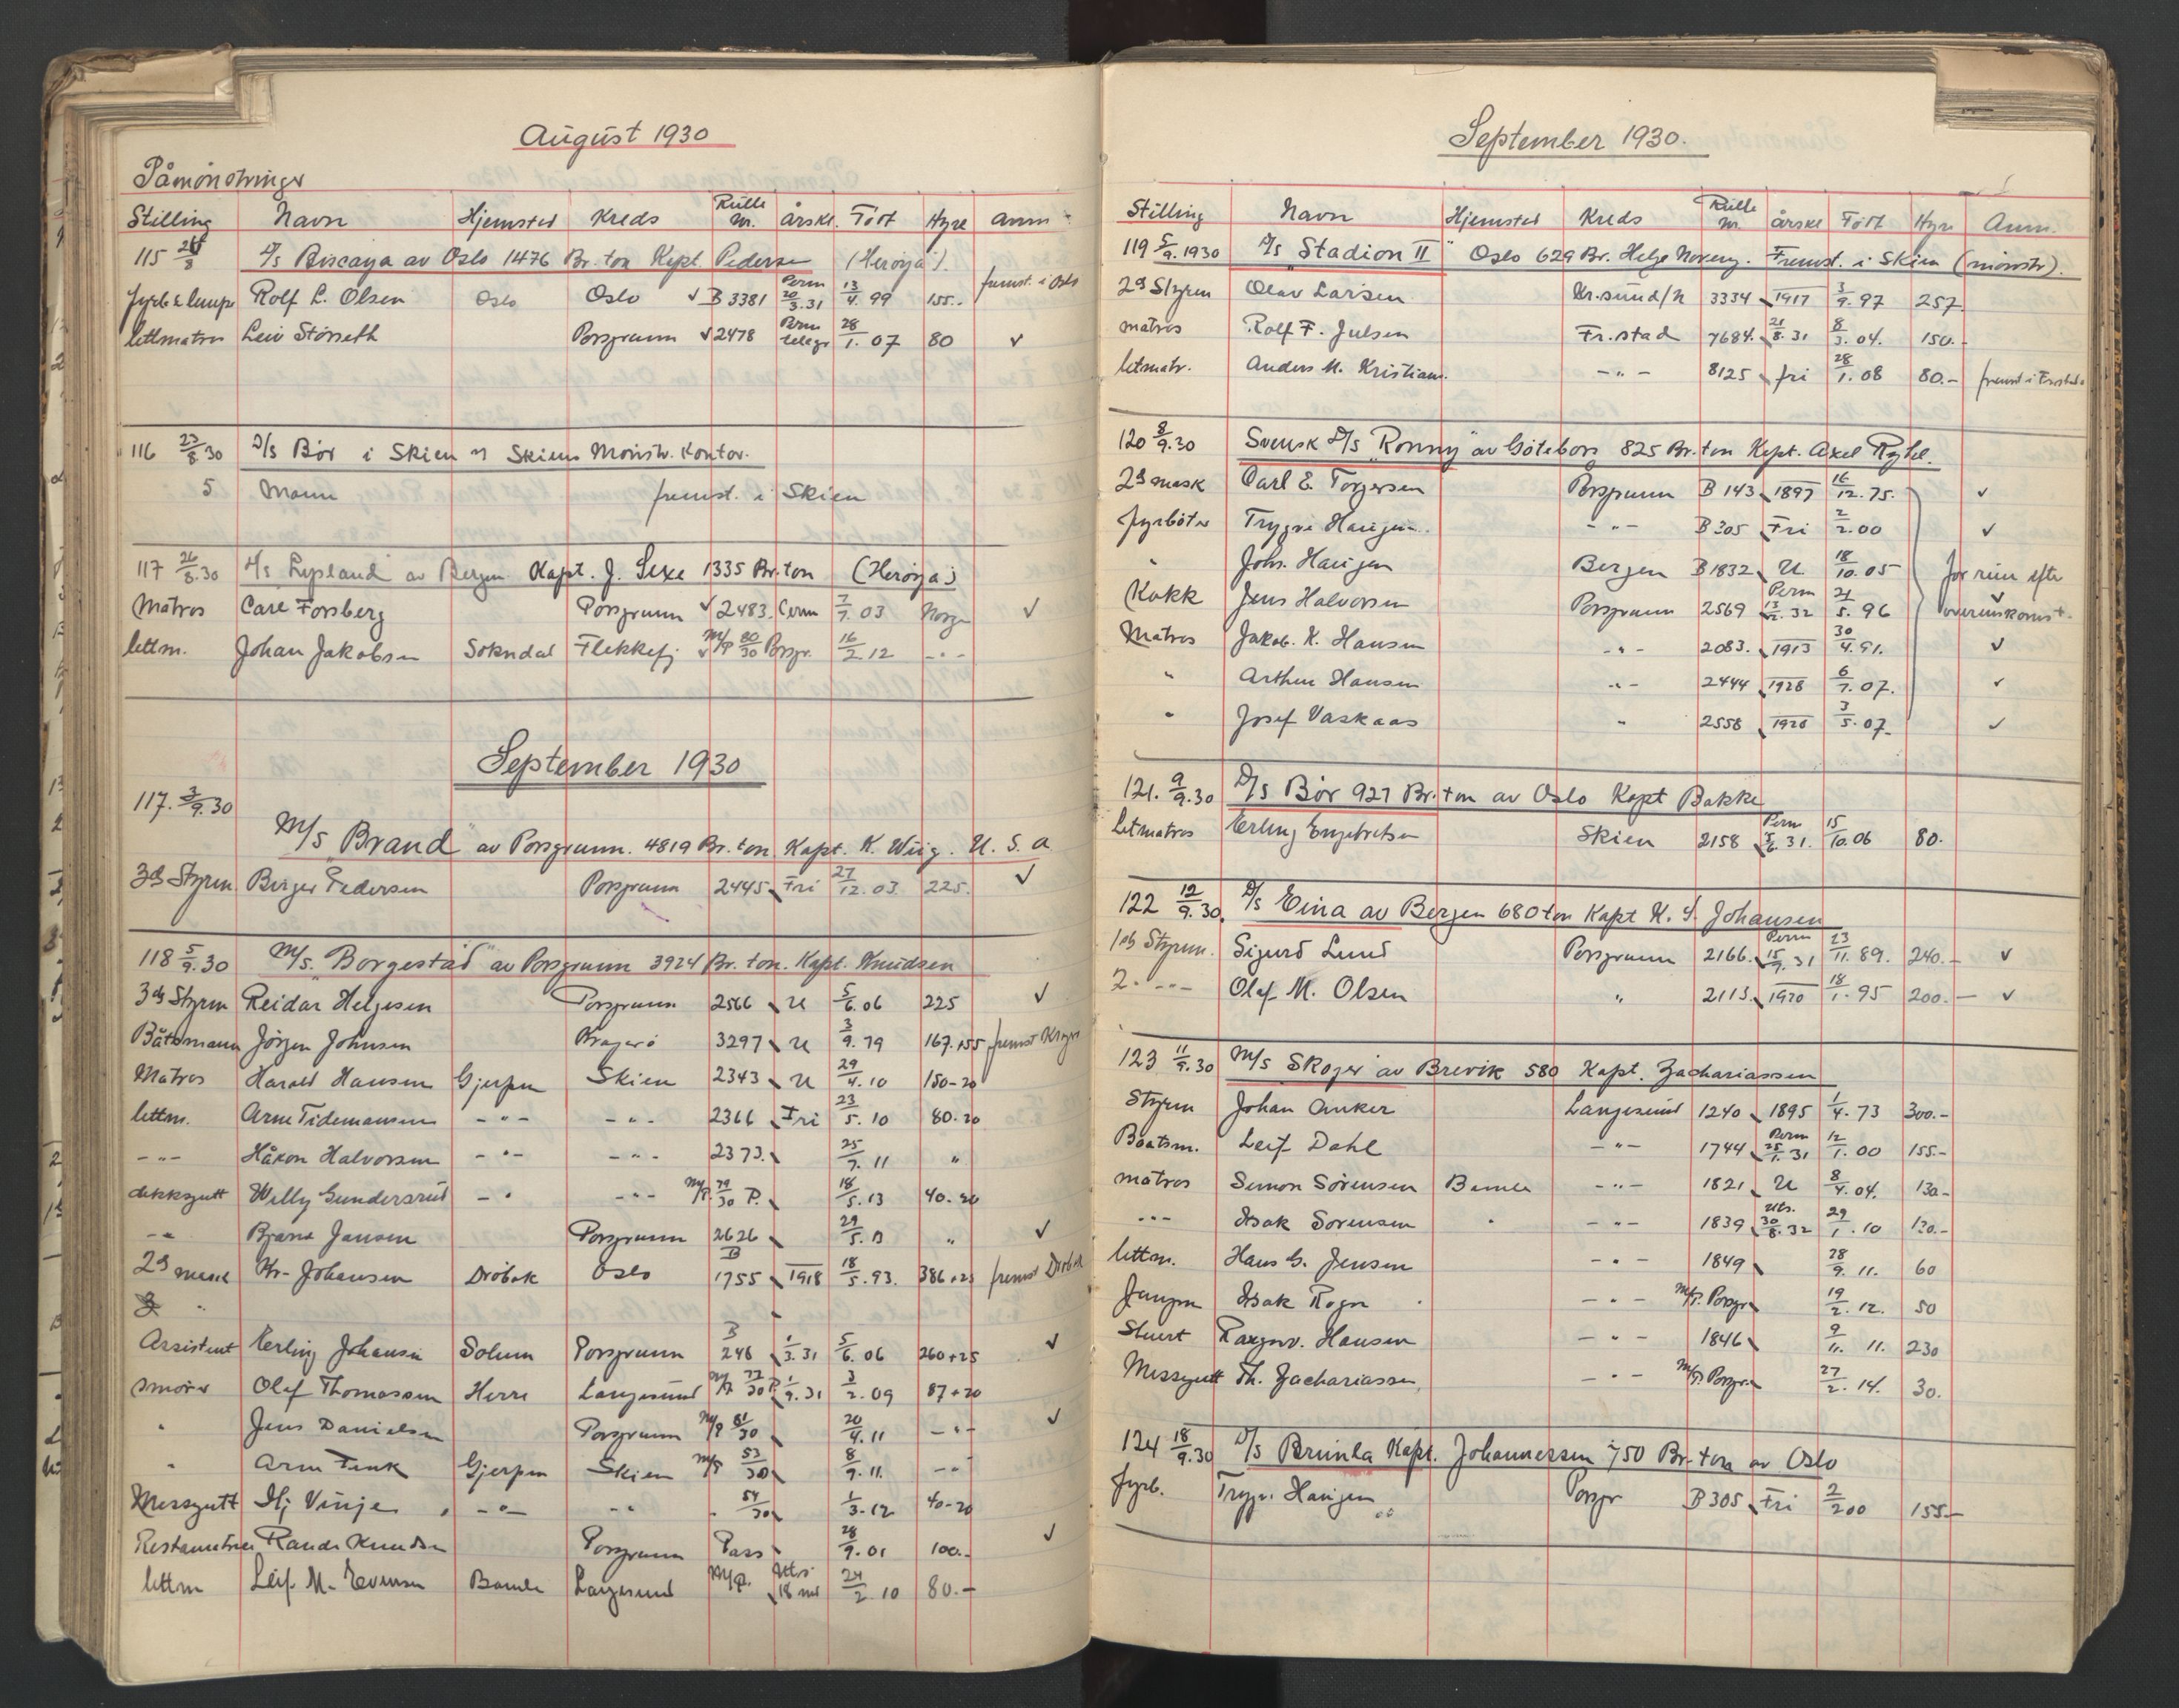 August 1930
Påmönstringer
Stilling Navn Hjemsted Kreds Rulle nr. årskl. Född Hyre anm
115 /8 D/s Biscaya av Oslo 1476 Br. ton Kapt. Pedersen (Heröya).
fyrb & lemp Rolf L. Olsen Oslo Oslo B 3381 Perm 20/3.31 13/4 99 155.- fremst. i Oslo
lettmatros Leiv Störseth Porsgrunn 2478 Perm 28/1. 07 80 ✓
116 23/8 30 D/s Bör i Skien Skiens Mönstr. Kontor.
5 Mann fremst. i Skien
117 26/8.30 D/s Lysland av Bergen Kapt. J. 1335 Br. ton (Heröya)
Matros Carl Forsberg Porsgrunn 2483 7/7. 03 Norge ✓
lettm. Johan Jakobsen Sokndal Flekkefj M/P 80/30 Porsgr. 16/2 12 -"-
September 1930
117. 3/9.30
M/s "Brand" av Porsgrunn. 4819 Br. ton Kapt. K. Wiig. U. S. A
3ds Styrm Birger Pedersen Porsgrunn 2445 Fri 27/12. 03 225. ✓
118 5/9.30 M/s. "Borgestad" av Porsgrunn 3924 Br. ton. Kapt. Knudsen
3ds Styrm Reidar Helgesen Porsgrunn 2566 U 5/6.06 225 ✓
Båtsmann Jörgen Johnsen Kragerö 3297 U 3/9.79 167.155 fremst Kragr
Matros Harald Hansen Gjerpen Skien 2343 U 29/4.10 150-20
lettm. Arne Tidemansen -"- -"- 2366 Fri 23/5.10 80.20
-"- Håkon Halvorsen -"- -"- 2373. 25/7.11 "
dekksgutt Willy Gundersrud -" -"- M/P. 79/30 P. 18/5.13 40.20
-"- Bjarne Jansen Porsgrunn 2626 29/5.13 " ✓
2g mask Kr. Johansen Dröbak Oslo B 1755 1918 18/5.93. 386+25 fremst Dröbak
3 "
Assistent Erling Johansen Solum Porsgrunn B 248 1/3.31 5/6.06 260+25 ✓
smörer Olaf Thomassen Herre Langesund M/P 77/30 P. 1/9.31 3/2.09 87+20
" Jens Danielsen Porsgrunn M/P 81/30 20/4.11 -"- ✓
" Arne Fenk Gjerpen Skien M/P 53/30 8/9.11. -"-
Messgutt Hj Vinje -"- -"- 54/30 1/3-12 40-20
Restauratrise Randi Knudsen Porsgrunn Pass 28/9.01 100.- ✓
lettm Leif. M. Evensen Bamle Langesund M/P. 18 24/2.10 80.-
September 1930.
Stilling Navn Hjemsted Kreds Rulle nr. årskl Född Hyre Anm.
119 5/9.1930 D/s "Stadion II" Oslo 629 Br. Helge Noreng. Fremst. i Skien (mönstr).
2g Styrm Olav Larsen Kr.sund/N 3334 1917 3/9.97 257.
matros Rolf F. Julsen Fr.stad 7684. 21/8.31 8/3.04. 150.-
letmatr. Anders M. Kristians. -"- 8125 fri 28/1.08 80.- fremst i Frestad
120 8/9.30 Svensk D/s "Ronny" av Göteborg 825 Br. ton Kapt. Axel Rydel.
2g mask Carl E. Torgersen Porsgrunn B 143 1897 16/12.75. ✓
fyrböter Trygve Haugen. -"- B 305 Fri 2/2.00 ✓
" Johs. Haugen Bergen B 1832 U. 18/10.05 for reise efter
Kokk Jens Halvorsen Porsgrunn 2569 Perm 13/2.32 21/5.96 ✓ overenskomst.
Matros Jakob. K. Hansen -"- 2083. 1913 30/4.91. ✓
" Arthur Hansen -"- 2444 1928 6/7.07. ✓
" Josef Vaskaas " 2558 1928 3/5.07. ✓
121. 9/9.30 D/s Bör 927 Br. ton av Oslo Kapt Bakke
Letmatros Erling Engebretsen Skien 2158 Perm 5/6.31. 15/10.06 80.
122 12/9.30. D/s Eina av Bergen 680 ton Kapt K. S. Johansen
1ste Styrm. Sigurd Lund Porsgrunn 2166. Perm 15/9.31 23/11.89. 240.- ✓
2. -"- Olaf M. Olsen " 2113. 1920 18/1.95 200.- ✓
123 11/9.30 M/s "Skoger" av Brevik 580 Kapt. Zachariassen
Styrm Johan Anker Langesund 1240 1895 1/4.73 300.-
Baatsm. Leif Dahl -"- 1744 Perm 25/1.31 12/1.00 155.-
matros Simon Sörensen Bamle -"- 1821 U 8/4.04. 130-
-"- Isak Sorensen " -"- 1839 Uts. 30/8.32 29/1.10 130.-
lettm. Hans G. Jensen -"- 1849 28/9.11. 60
Jungm Isak Rogn -"- M/P. Porsgr 19/2.12. 50
Stuert Ragnv. Hansen -"- 1846 9/11. 11. 230
Messgutt Th. Zachariassen -"- M/P. Porsgr. 27/2.14. 30.
124 18/9.30 D/s Brunla Kapt. Johannessen 750 Br. ton av Oslo
fyrb. Trygv. Haugen Porsgr B 305 Fri 2/2 00 155.-